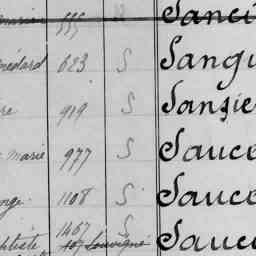 marie 555 S Sanci
médard 623 S Sangu
re 919 S Sansie
marie 977 S Sauce
nge 1108 S Sauce
1467 S
ptiste 107 Louvigné Sauce